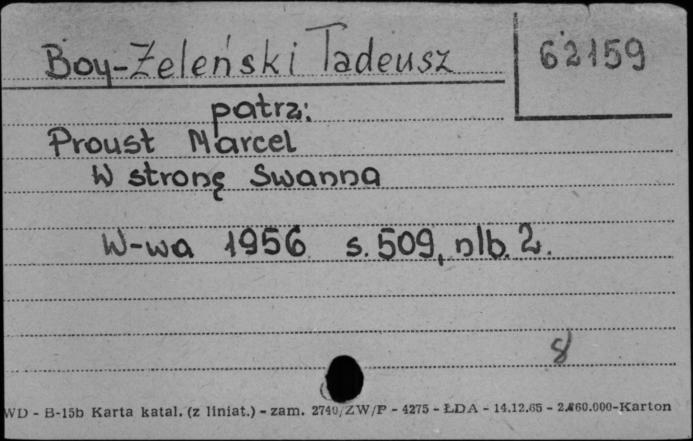 Boy-Żeleński Tadeusz
62159
patrz:
Proust Marcel
W stronę Swanna
W-wa 1956 s. 509, nlb. 2.
8
WD - B-15b Karta katal. (z liniat.) - zam. 2740/ZW/P - 4275 - ŁDA - 14.12.65 - -Karton